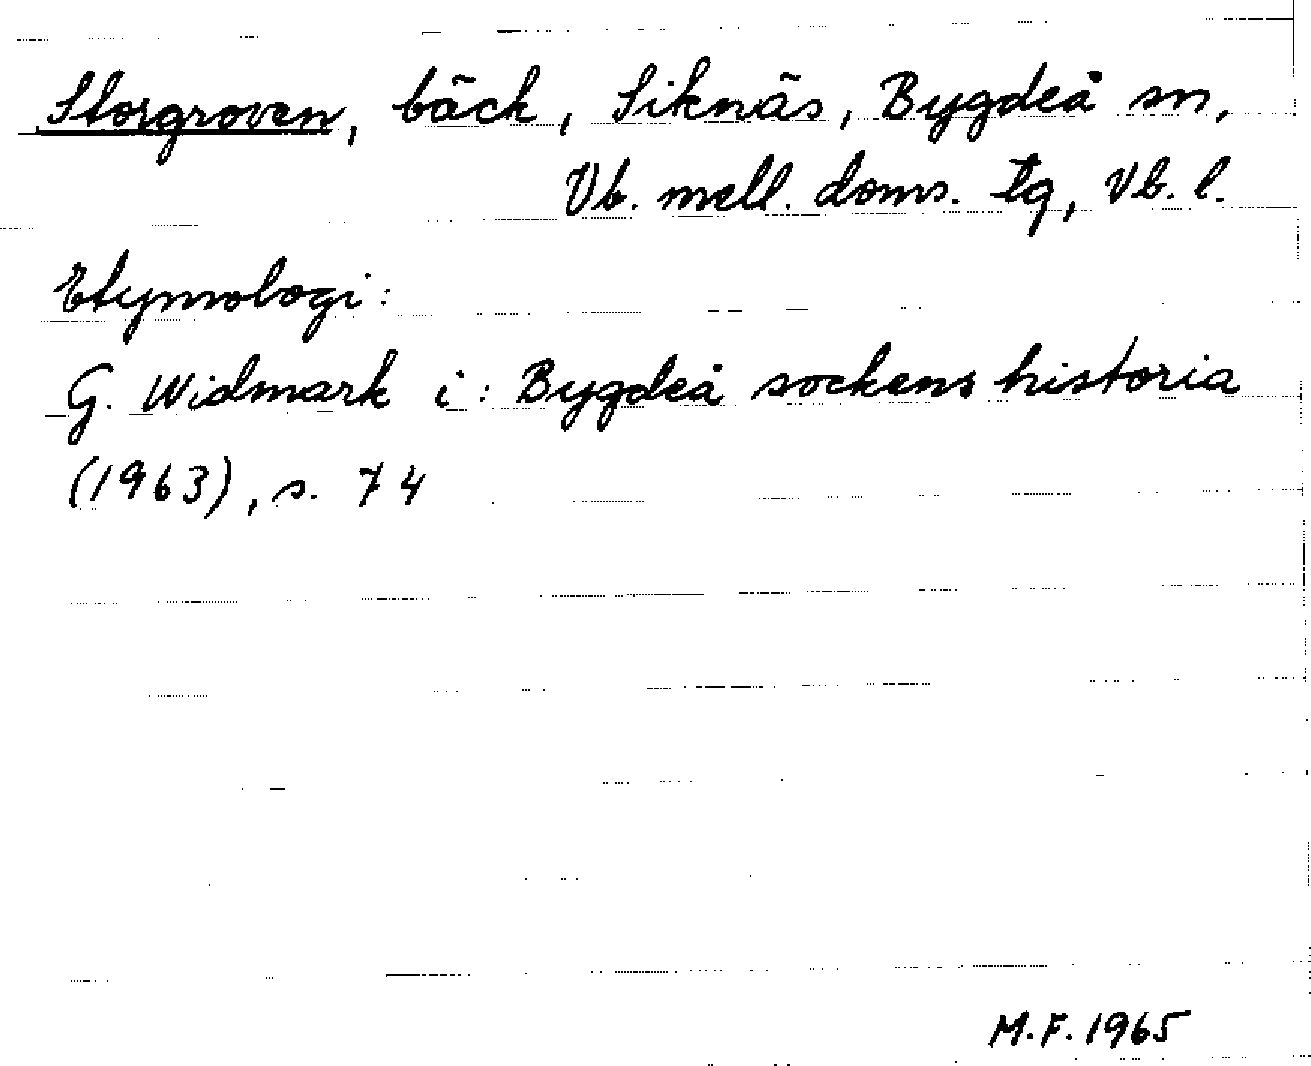 Storgroven, bäck, Siknäs, Bygdeå sn,
Vb. mell. doms. tg, Vb. l.
Etymologi:
G. Widmark i: Bygdeå sockens historia
(1963), s. 74
M.F. 1965